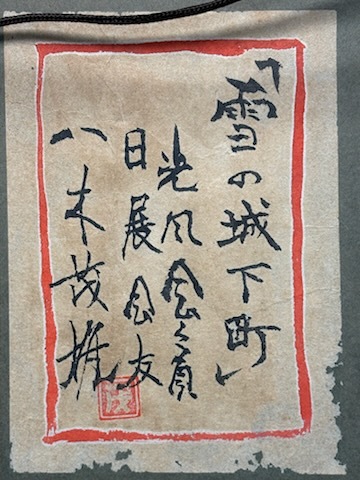 「雪の城下町」
光風会会員
日展会友
八木茂雄